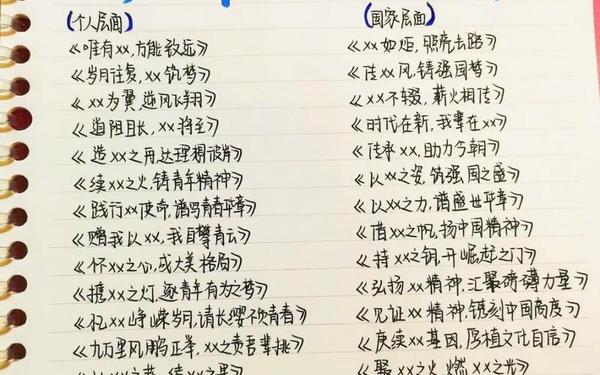 (个人层面)
《唯有xx,方能致远》
《岁月往复,xx筑梦》
《xx为翼,逆风飞翔》
《道阻且长,xx将至》
《造xx之舟,达理想彼岸》
《续xx之火,铸青年精神》
《践行xx使命,谱写青春华章》
《赠我以xx,我自攀青云》
《怀xx之心,成大美格局》
《携xx之灯,逐青年有为之梦》
《忆xx峥嵘岁月,请长缨不负青春》
《九万里风鹏正举,xx之责吾辈挑》
(国家层面)
《xx如炬,照亮去路》
《传xx风,铸强国梦》
《xx不辍,薪火相传》
《时代在新,我辈在xx》
《传承xx,助力今朝》
《以xx之姿,筑强国之盛》
《以xx之力,谱盛世华章》
《借xx之帆,扬中国精神》
《持xx之钥,开崛起之门》
《弘扬xx精神,汇聚磅礴力量》
《见证xx精神,镌刻中国高度》
《赓续xx基因,厚植文化自信》
《聚xx之火,燃xx之光》